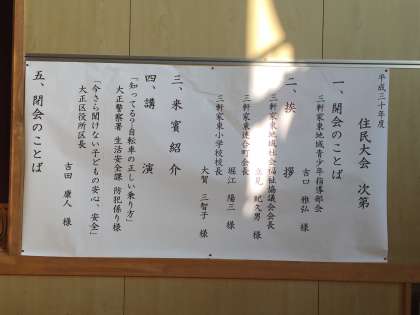 平成三十年度
住民大会 次第
一、開会のことば
三軒家東地域青少年指導部会
吉口 雅弘 様
二、挨 拶
三軒家東地域社会福祉協議会会長
立見 紀久男 様
三軒家東連合町会長
堀江 陽三 様
三軒家東小学校校長
大賀 三智子 様
三、来賓紹介
四、講 演
「知ってる?自転車の正しい乗り方」
大正警察署 生活安全課 防犯係り様
「今さら聞けない子どもの安心、安全」
大正区役所区長
吉田 康人 様
五、閉会のことば